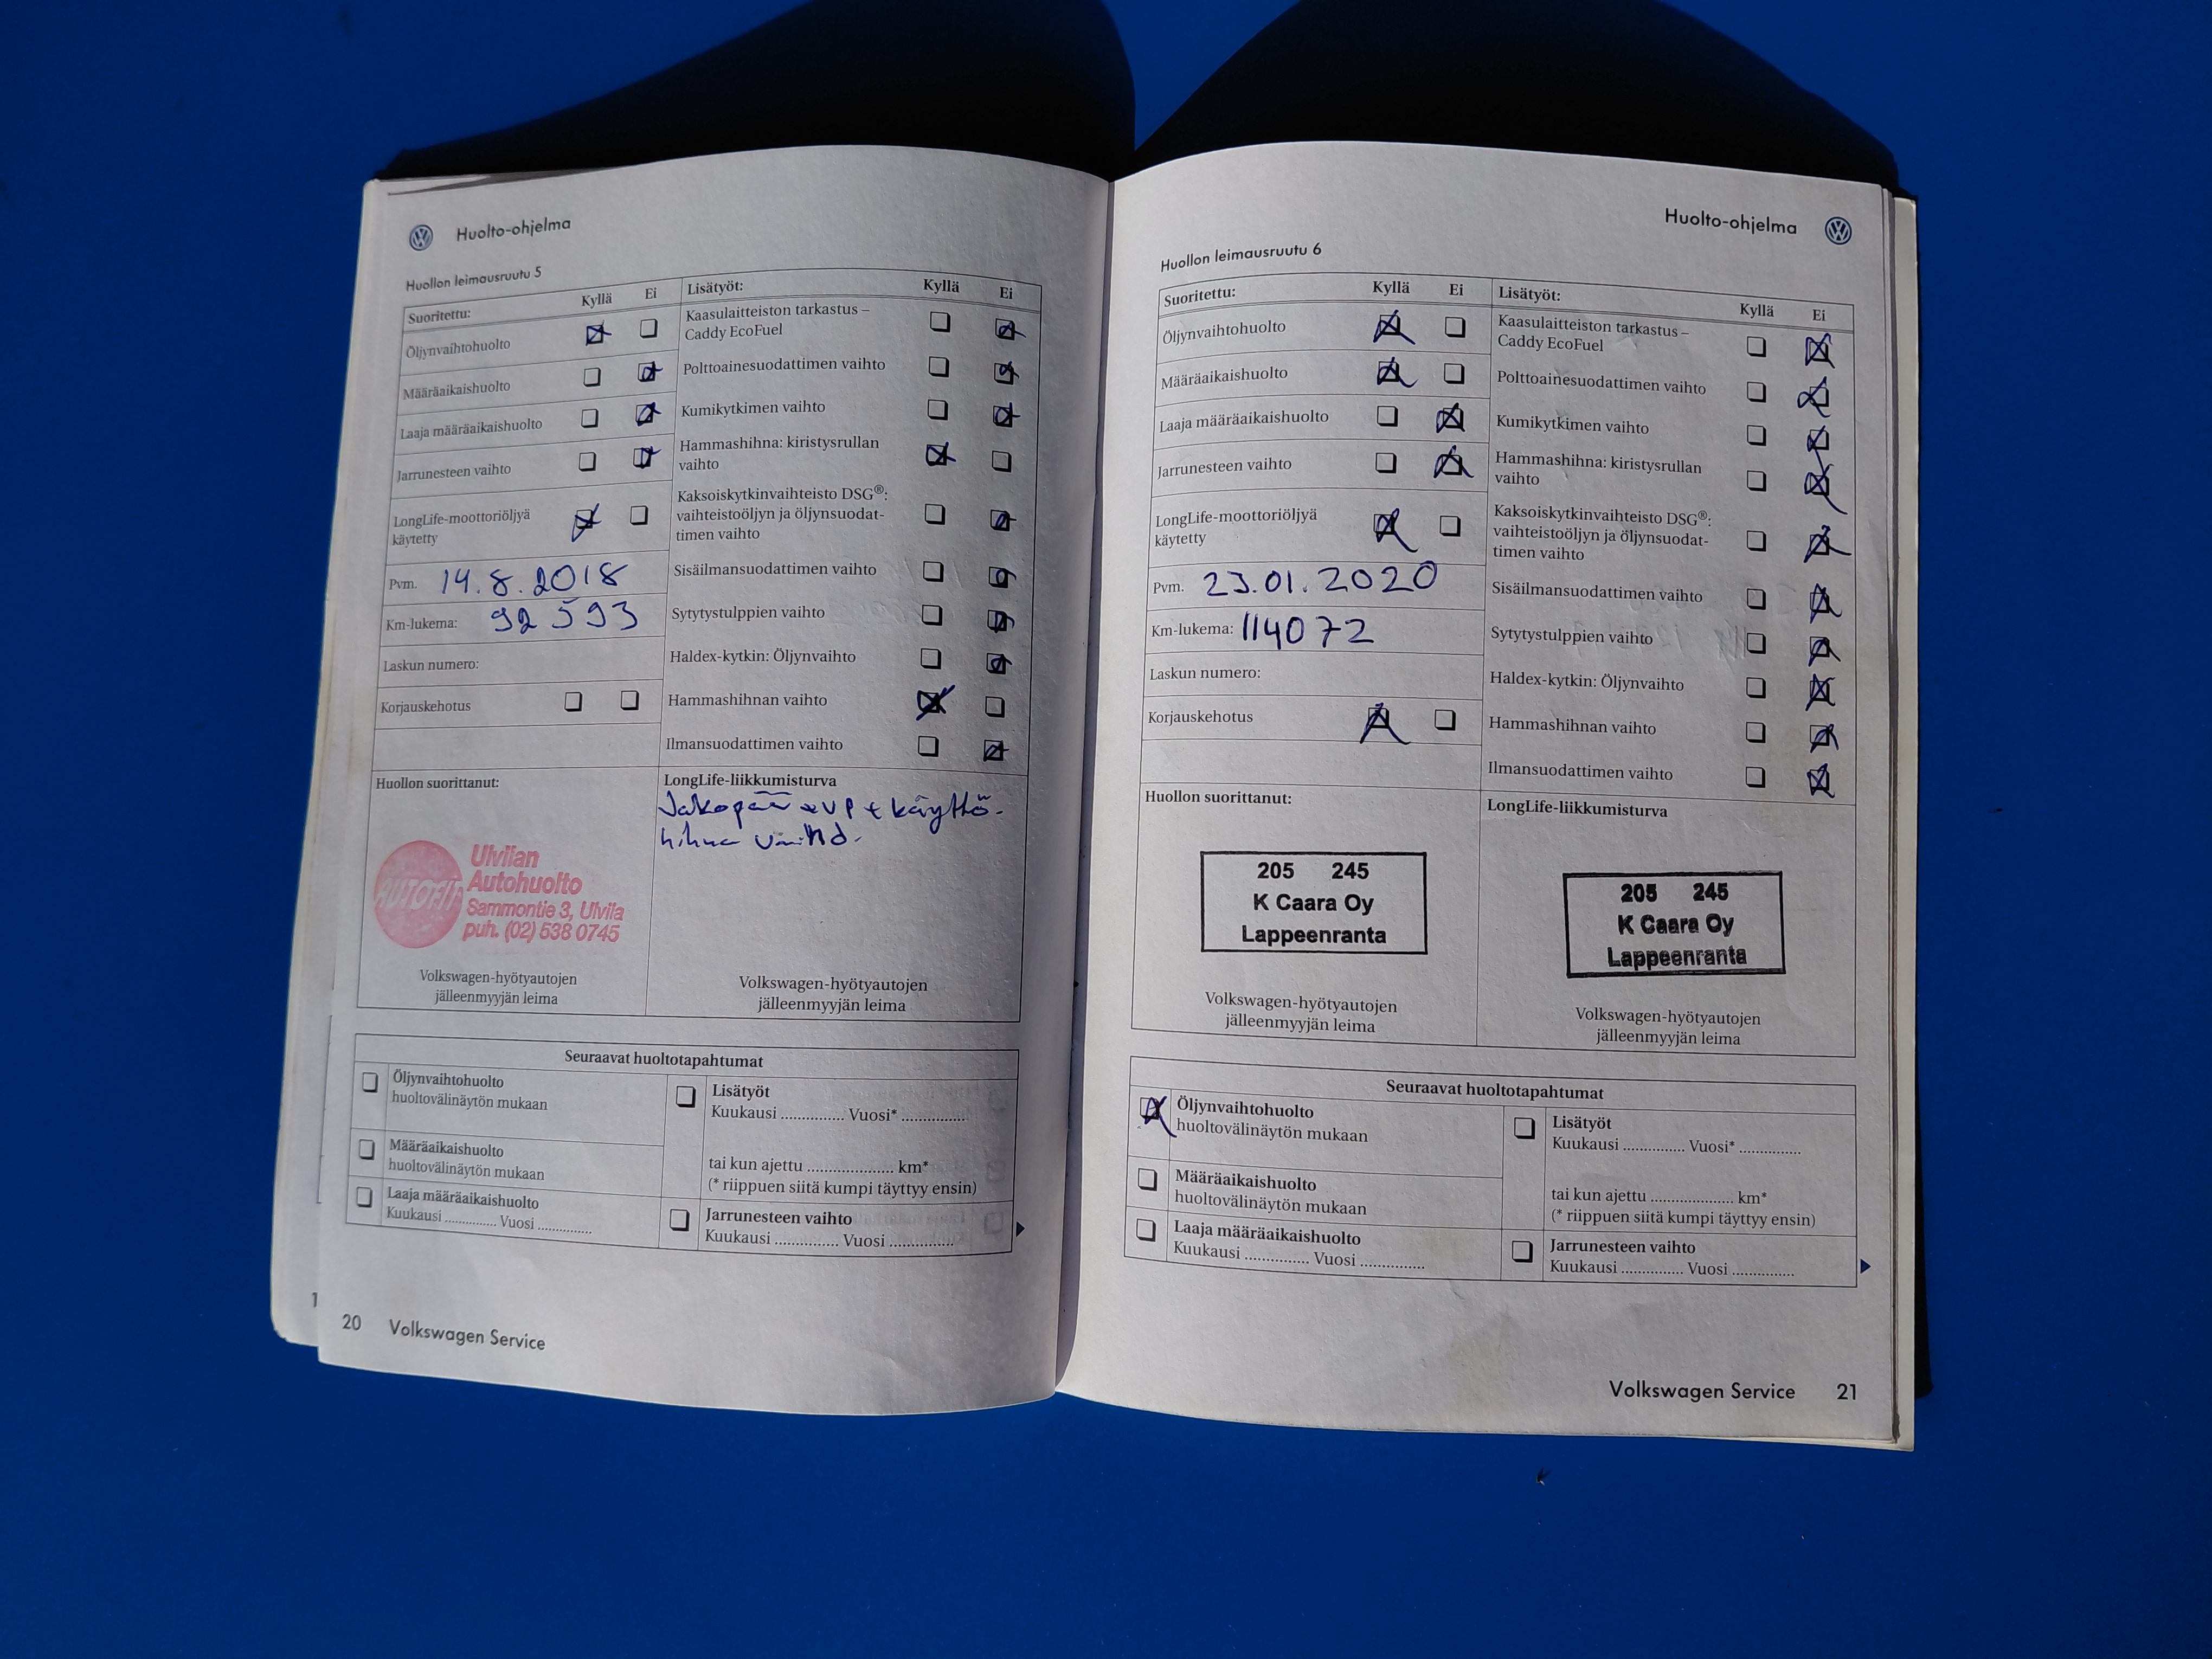 Huolto-ohjelma
Huollon leimausruutu 5
Suoritettu:
Kyllä
Ei
Öljynvaihtohuolto
Määräaikaishuolto
Laaja määräaikaishuolto
Jarrunesteen vaihto
LongLife-moottoriöljyä
käytetty
Pvm. 14.8.2018
Km-lukema: 92593
Laskun numero:
Korjauskehotus
Lisätyöt:
Kyllä
Ei
Kaasulaitteiston tarkastus –
Caddy EcoFuel
Polttoainesuodattimen vaihto
Kumikytkimen vaihto
Hammashihna: kiristysrullan
vaihto
Kaksoiskytkinvaihteisto DSG®:
vaihteistoöljyn ja öljynsuodat-
timen vaihto
Sisäilmansuodattimen vaihto
Sytytystulppien vaihto
Haldex-kytkin: Öljynvaihto
Hammashihnan vaihto
Ilmansuodattimen vaihto
Huollon suorittanut:
AUTOFIT
Ulvilan
Autohuolto
Sammontie 3, Ulvila
puh. (02) 538 0745
Volkswagen-hyötyautojen
jälleenmyyjän leima
LongLife-liikkumisturva
Jakopää + VP + käyttö-
hihna
Volkswagen-hyötyautojen
jälleenmyyjän leima
Seuraavat huoltotapahtumat
Öljynvaihtohuolto
huoltovälinäytön mukaan
Määräaikaishuolto
huoltovälinäytön mukaan
Laaja määräaikaishuolto
Kuukausi .............. Vuosi ..............
Lisätyöt
Kuukausi .............. Vuosi* ..............
tai kun ajettu .................... km*
(* riippuen siitä kumpi täyttyy ensin)
Jarrunesteen vaihto
Kuukausi .............. Vuosi ..............
1
20 Volkswagen Service
Huolto-ohjelma
Huollon leimausruutu 6
Suoritettu:
Kyllä
Ei
Öljynvaihtohuolto
Määräaikaishuolto
Laaja määräaikaishuolto
Jarrunesteen vaihto
LongLife-moottoriöljyä
käytetty
Pvm. 23.01.2020
Km-lukema: 114072
Laskun numero:
Korjauskehotus
Lisätyöt:
Kyllä
Ei
Kaasulaitteiston tarkastus –
Caddy EcoFuel
Polttoainesuodattimen vaihto
Kumikytkimen vaihto
Hammashihna: kiristysrullan
vaihto
Kaksoiskytkinvaihteisto DSG®:
vaihteistoöljyn ja öljynsuodat-
timen vaihto
Sisäilmansuodattimen vaihto
Sytytystulppien vaihto
Haldex-kytkin: Öljynvaihto
Hammashihnan vaihto
Ilmansuodattimen vaihto
Huollon suorittanut:
205 245
K Caara Oy
Lappeenranta
Volkswagen-hyötyautojen
jälleenmyyjän leima
LongLife-liikkumisturva
205 245
K Caara Oy
Lappeenranta
Volkswagen-hyötyautojen
jälleenmyyjän leima
Seuraavat huoltotapahtumat
Öljynvaihtohuolto
huoltovälinäytön mukaan
Määräaikaishuolto
huoltovälinäytön mukaan
Laaja määräaikaishuolto
Kuukausi .............. Vuosi ..............
Lisätyöt
Kuukausi .............. Vuosi* ..............
tai kun ajettu .................... km*
(* riippuen siitä kumpi täyttyy ensin)
Jarrunesteen vaihto
Kuukausi .............. Vuosi ..............
Volkswagen Service 21